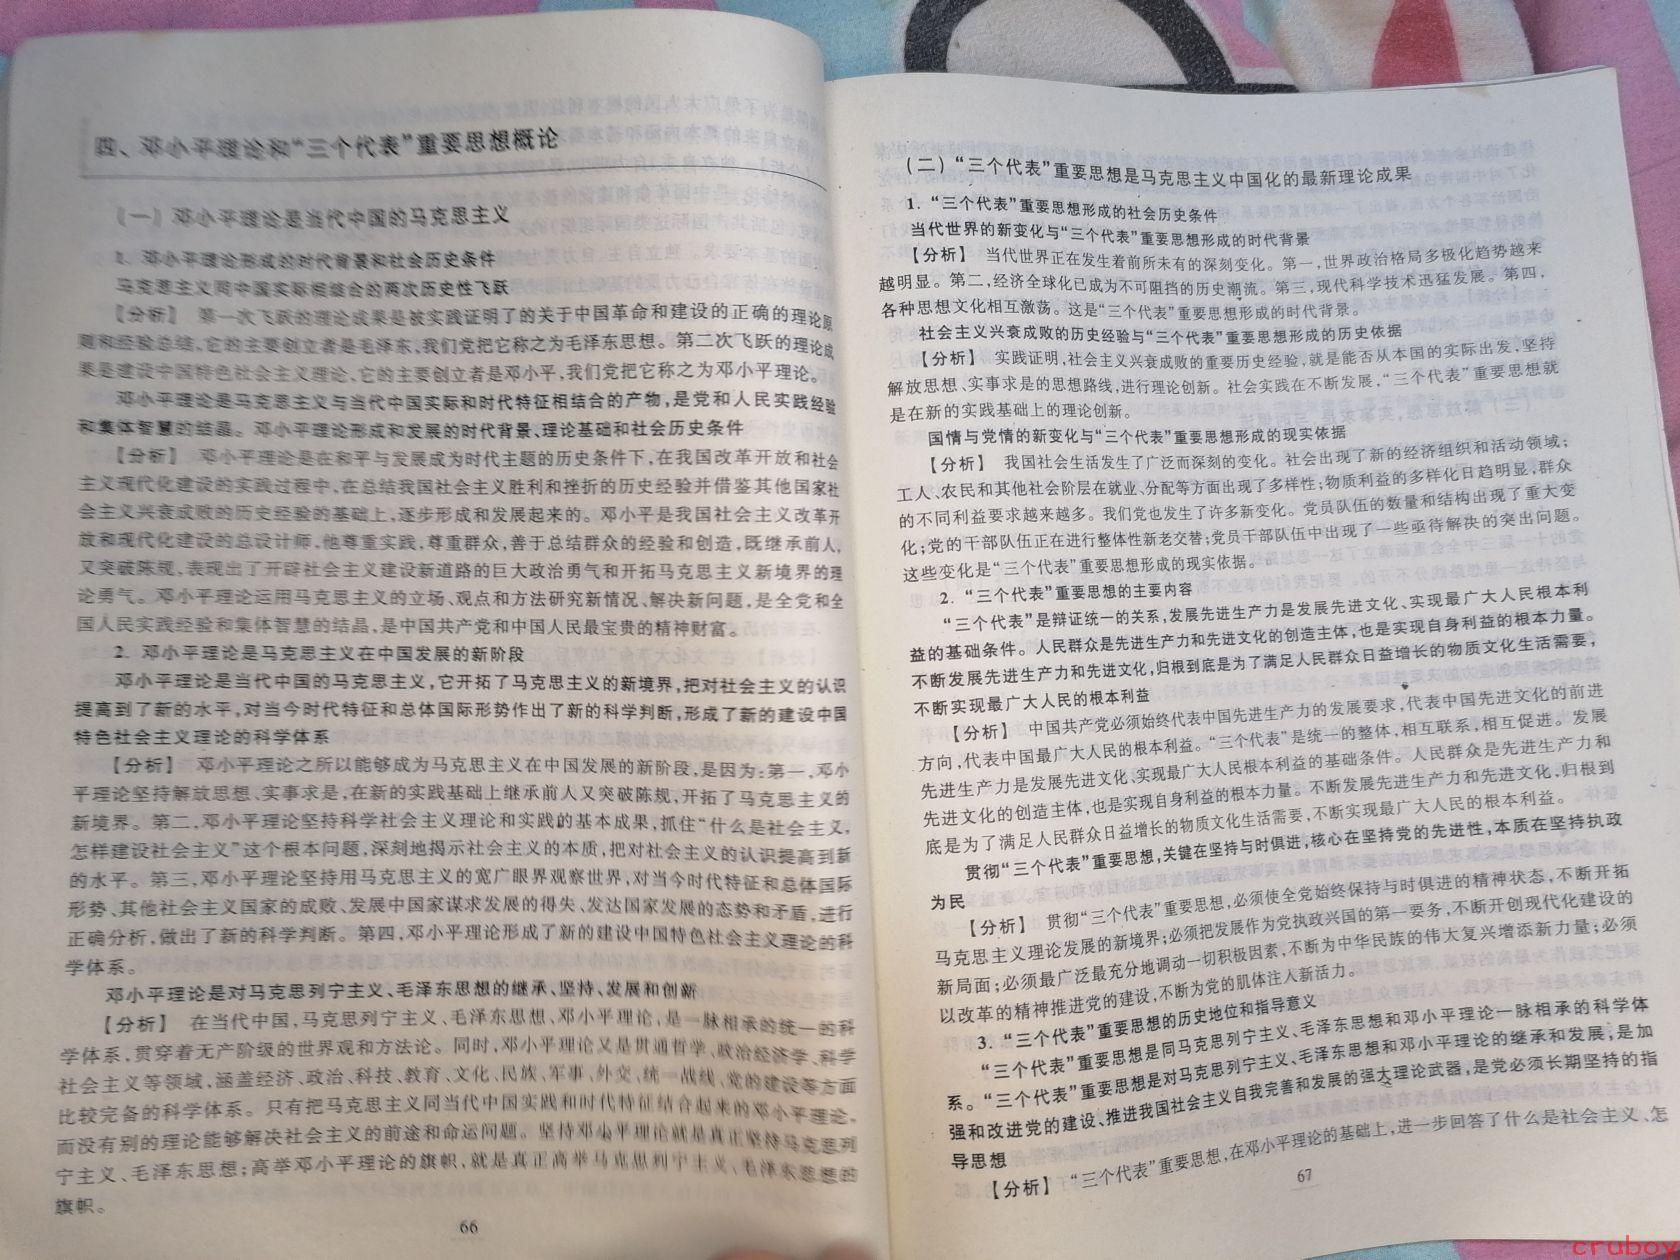 四、邓小平理论和“三个代表”重要思想概论
（一）邓小平理论是当代中国的马克思主义
1. 邓小平理论形成的时代背景和社会历史条件
马克思主义同中国实际相结合的两次历史性飞跃
【分析】 第一次飞跃的理论成果是被实践证明了的关于中国革命和建设的正确的理论原
则和经验总结，它的主要创立者是毛泽东，我们党把它称之为毛泽东思想。第二次飞跃的理论成
果是建设中国特色社会主义理论，它的主要创立者是邓小平，我们党把它称之为邓小平理论。
邓小平理论是马克思主义与当代中国实际和时代特征相结合的产物，是党和人民实践经验
和集体智慧的结晶。邓小平理论形成和发展的时代背景、理论基础和社会历史条件
【分析】 邓小平理论是在和平与发展成为时代主题的历史条件下，在我国改革开放和社会
主义现代化建设的实践过程中，在总结我国社会主义胜利和挫折的历史经验并借鉴其他国家社
会主义兴衰成败的历史经验的基础上，逐步形成和发展起来的。邓小平是我国社会主义改革开
放和现代化建设的总设计师，他尊重实践，尊重群众，善于总结群众的经验和创造，既继承前人，
又突破陈规，表现出了开辟社会主义建设新道路的巨大政治勇气和开拓马克思主义新境界的理
论勇气。邓小平理论运用马克思主义的立场、观点和方法研究新情况、解决新问题，是全党和全
国人民实践经验和集体智慧的结晶，是中国共产党和中国人民最宝贵的精神财富。
2. 邓小平理论是马克思主义在中国发展的新阶段
邓小平理论是当代中国的马克思主义，它开拓了马克思主义的新境界，把对社会主义的认识
提高到了新的水平，对当今时代特征和总体国际形势作出了新的科学判断，形成了新的建设中国
特色社会主义理论的科学体系
【分析】 邓小平理论之所以能够成为马克思主义在中国发展的新阶段，是因为：第一，邓小
平理论坚持解放思想、实事求是，在新的实践基础上继承前人又突破陈规，开拓了马克思主义的
新境界。第二，邓小平理论坚持科学社会主义理论和实践的基本成果，抓住“什么是社会主义，
怎样建设社会主义”这个根本问题，深刻地揭示社会主义的本质，把对社会主义的认识提高到新
的水平。第三，邓小平理论坚持用马克思主义的宽广眼界观察世界，对当今时代特征和总体国际
形势、其他社会主义国家的成败、发展中国家谋求发展的得失、发达国家发展的态势和矛盾，进行
正确分析，做出了新的科学判断。第四，邓小平理论形成了新的建设中国特色社会主义理论的科
学体系。
邓小平理论是对马克思列宁主义、毛泽东思想的继承、坚持、发展和创新
【分析】 在当代中国，马克思列宁主义、毛泽东思想、邓小平理论，是一脉相承的统一的科
学体系，贯穿着无产阶级的世界观和方法论。同时，邓小平理论又是贯通哲学、政治经济学、科学
社会主义等领域，涵盖经济、政治、科技、教育、文化、民族、军事、外交、统一战线、党的建设等方面
比较完备的科学体系。只有把马克思主义同当代中国实践和时代特征结合起来的邓小平理论，
而没有别的理论能够解决社会主义的前途和命运问题。坚持邓小平理论就是真正坚持马克思列
宁主义、毛泽东思想；高举邓小平理论的旗帜，就是真正高举马克思列宁主义、毛泽东思想的
旗帜。
66
（二）“三个代表”重要思想是马克思主义中国化的最新理论成果
1. “三个代表”重要思想形成的社会历史条件
当代世界的新变化与“三个代表”重要思想形成的时代背景
【分析】 当代世界正在发生着前所未有的深刻变化。第一，世界政治格局多极化趋势越来
越明显。第二，经济全球化已成为不可阻挡的历史潮流。第三，现代科学技术迅猛发展。第四，
各种思想文化相互激荡。这是“三个代表”重要思想形成的时代背景。
社会主义兴衰成败的历史经验与“三个代表”重要思想形成的历史依据
【分析】 实践证明，社会主义兴衰成败的重要历史经验，就是能否从本国的实际出发，坚持
解放思想、实事求是的思想路线，进行理论创新。社会实践在不断发展，“三个代表”重要思想就
是在新的实践基础上的理论创新。
国情与党情的新变化与“三个代表”重要思想形成的现实依据
【分析】 我国社会生活发生了广泛而深刻的变化。社会出现了新的经济组织和活动领域；
工人、农民和其他社会阶层在就业、分配等方面出现了多样性；物质利益的多样化日趋明显，群众
的不同利益要求越来越多。我们党也发生了许多新变化。党员队伍的数量和结构出现了重大变
化；党的干部队伍正在进行整体性新老交替；党员干部队伍中出现了一些亟待解决的突出问题。
这些变化是“三个代表”重要思想形成的现实依据。
2. “三个代表”重要思想的主要内容
“三个代表”是辩证统一的关系，发展先进生产力是发展先进文化、实现最广大人民根本利
益的基础条件。人民群众是先进生产力和先进文化的创造主体，也是实现自身利益的根本力量。
不断发展先进生产力和先进文化，归根到底是为了满足人民群众日益增长的物质文化生活需要，
不断实现最广大人民的根本利益
【分析】 中国共产党必须始终代表中国先进生产力的发展要求，代表中国先进文化的前进
方向，代表中国最广大人民的根本利益。“三个代表”是统一的整体，相互联系，相互促进。发展
先进生产力是发展先进文化、实现最广大人民根本利益的基础条件。人民群众是先进生产力和
先进文化的创造主体，也是实现自身利益的根本力量。不断发展先进生产力和先进文化，归根到
底是为了满足人民群众日益增长的物质文化生活需要，不断实现最广大人民的根本利益。
贯彻“三个代表”重要思想，关键在坚持与时俱进，核心在坚持党的先进性，本质在坚持执政
为民
【分析】 贯彻“三个代表”重要思想，必须使全党始终保持与时俱进的精神状态，不断开拓
马克思主义理论发展的新境界；必须把发展作为党执政兴国的第一要务，不断开创现代化建设的
新局面；必须最广泛最充分地调动一切积极因素，不断为中华民族的伟大复兴增添新力量；必须
以改革的精神推进党的建设，不断为党的肌体注入新活力。
3. “三个代表”重要思想的历史地位和指导意义
“三个代表”重要思想是同马克思列宁主义、毛泽东思想和邓小平理论一脉相承的科学体
系。“三个代表”重要思想是对马克思列宁主义、毛泽东思想和邓小平理论的继承和发展；是加
强和改进党的建设、推进我国社会主义自我完善和发展的强大理论武器，是党必须长期坚持的指
导思想
【分析】 “三个代表”重要思想，在邓小平理论的基础上，进一步回答了什么是社会主义、怎
67
cruboy